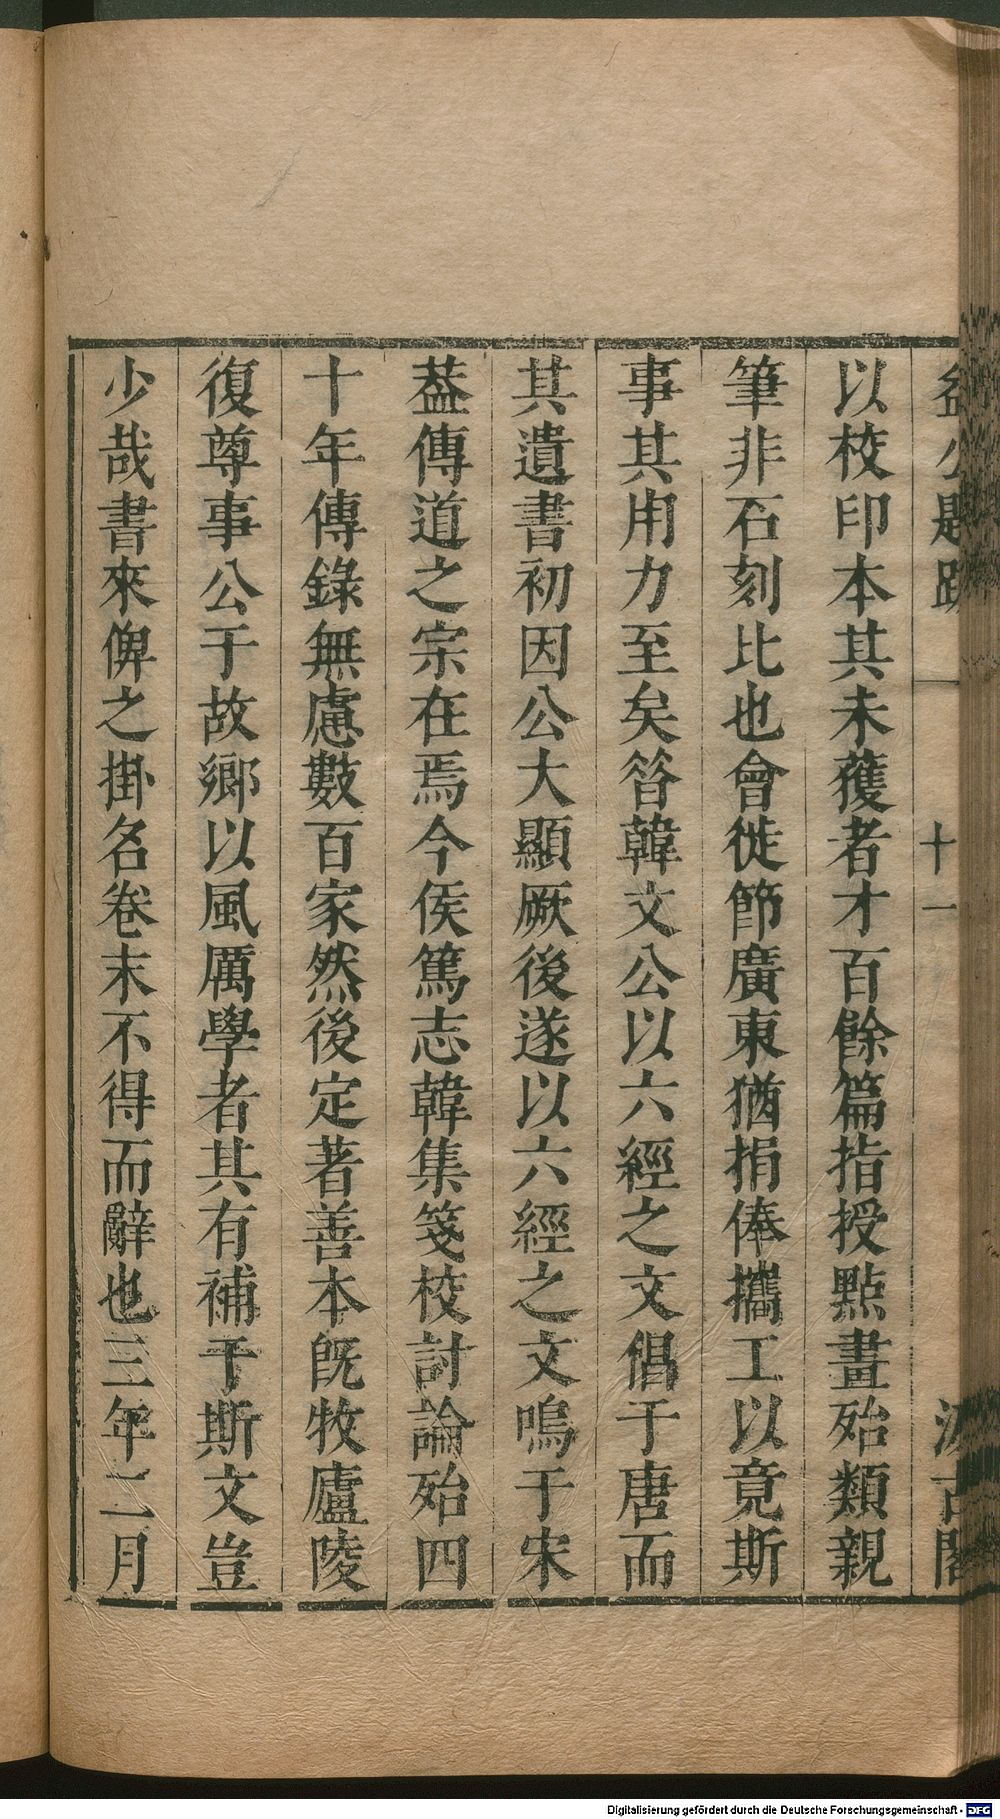 益公題跋 一 十一 汲古閣
以校印本其未獲者才百餘篇指授點畫殆類親
筆非石刻比也會徙節廣東猶捐俸攜工以竟斯
事其用力至矣昝韓文公以六經之文倡于唐而
其遺書初因公大顯厥後遂以六經之文鳴于宋
葢傳道之宗在焉今侯篤志韓集箋校討論殆四
十年傳錄無慮數百家然後定著善本旣牧廬陵
復尊事公于故鄉以風厲學者其有補于斯文豈
少哉書來俾之掛名卷末不得而辭也三年二月
Digitalisierung gefördert durch die Deutsche Forschungsgemeinschaft - DFG